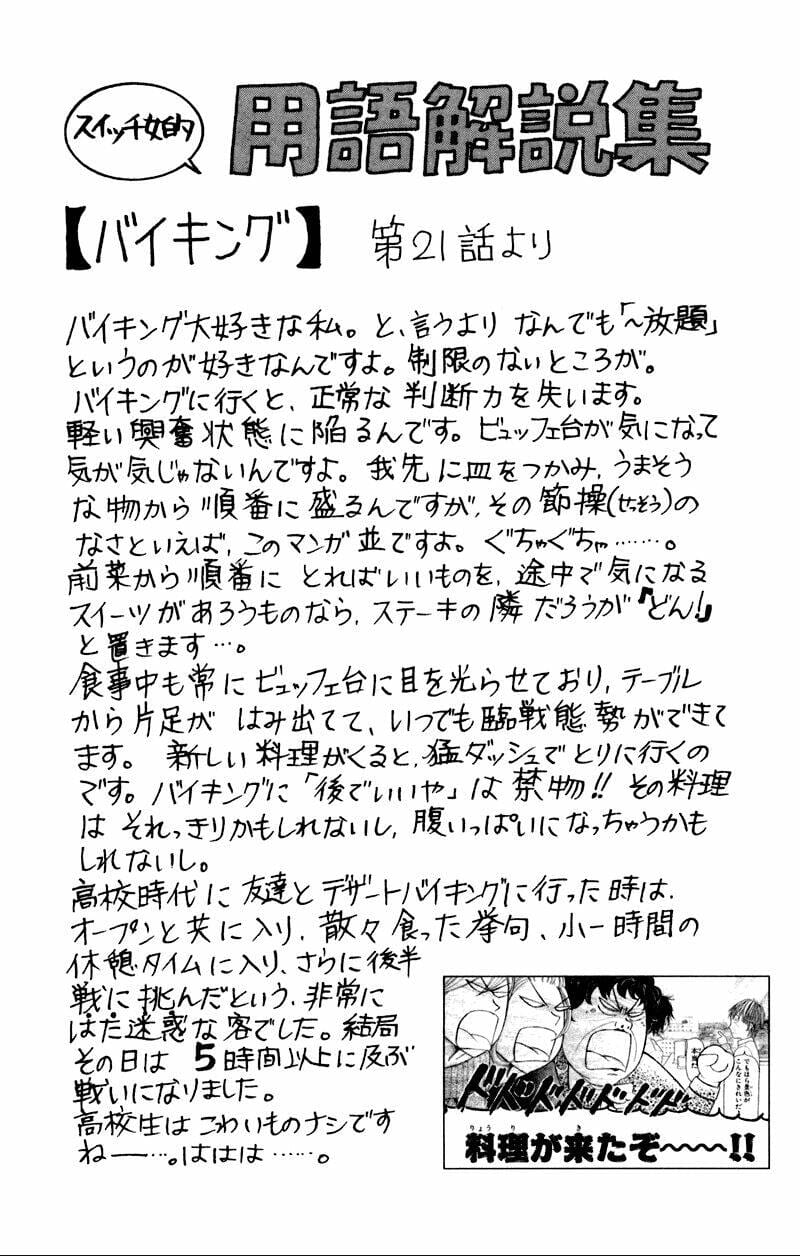 スイッチ女的
用語解説集
【バイキング】 第21話より
バイキング大好きな私。と、言うより なんでも「〜放題」
というのが好きなんですよ。制限のないところが。
バイキングに行くと、正常な判断力を失います。
軽い興奮状態に陥るんです。ビュッフェ台が気になって
気が気じゃないんですよ。我先に皿をつかみ、うまそう
な物から順番に盛るんですが、その節操(せっそう)の
なさといえば、このマンガ並ですよ。ぐちゃぐちゃ………。
前菜から順番に とればいいものを、途中で気になる
スイーツがあろうものなら、ステーキの隣だろうが『どん!』
と置きます…。
食事中も常にビュッフェ台に目を光らせており、テーブル
から片足が はみ出てて、いつでも臨戦態勢ができて
ます。 新しい料理がくると、猛ダッシュでとりに行くの
です。バイキングに「後でいいや」は禁物!! その料理
は それっきりかもしれないし、腹いっぱいになっちゃうかも
しれないし。
高校時代に友達とデザートバイキングに行った時は、
オープンと共に入り、散々食った挙句、小一時間の
休憩タイムに入り、さらに後半
戦に挑んだという、非常に
はた迷惑な客でした。結局
その日は 5時間以上に及ぶ
戦いになりました。
高校生はこわいものナシです
ねー…。ははは……。
でもほら景色が
こんなにきれいだ
本当だ
ドドドドドドド
料理が来たぞ〜〜〜!!
りょうり き